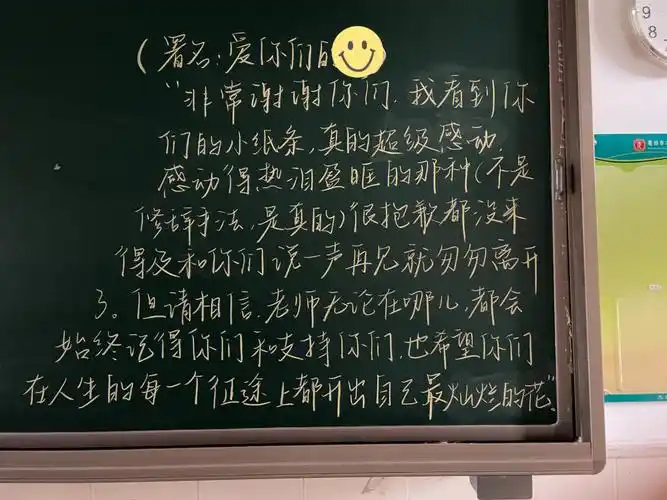 （署名：爱你们的
“非常谢谢你们，我看到你
们的小纸条，真的超级感动，
感动得热泪盈眶的那种（不是
修辞手法，是真的）很抱歉都没来
得及和你们说一声再见就匆匆离开
了。但请相信，老师无论在哪儿，都会
始终记得你们和支持你们，也希望你们
在人生的每一个征途上都开出自己最灿烂的花”。
9
8